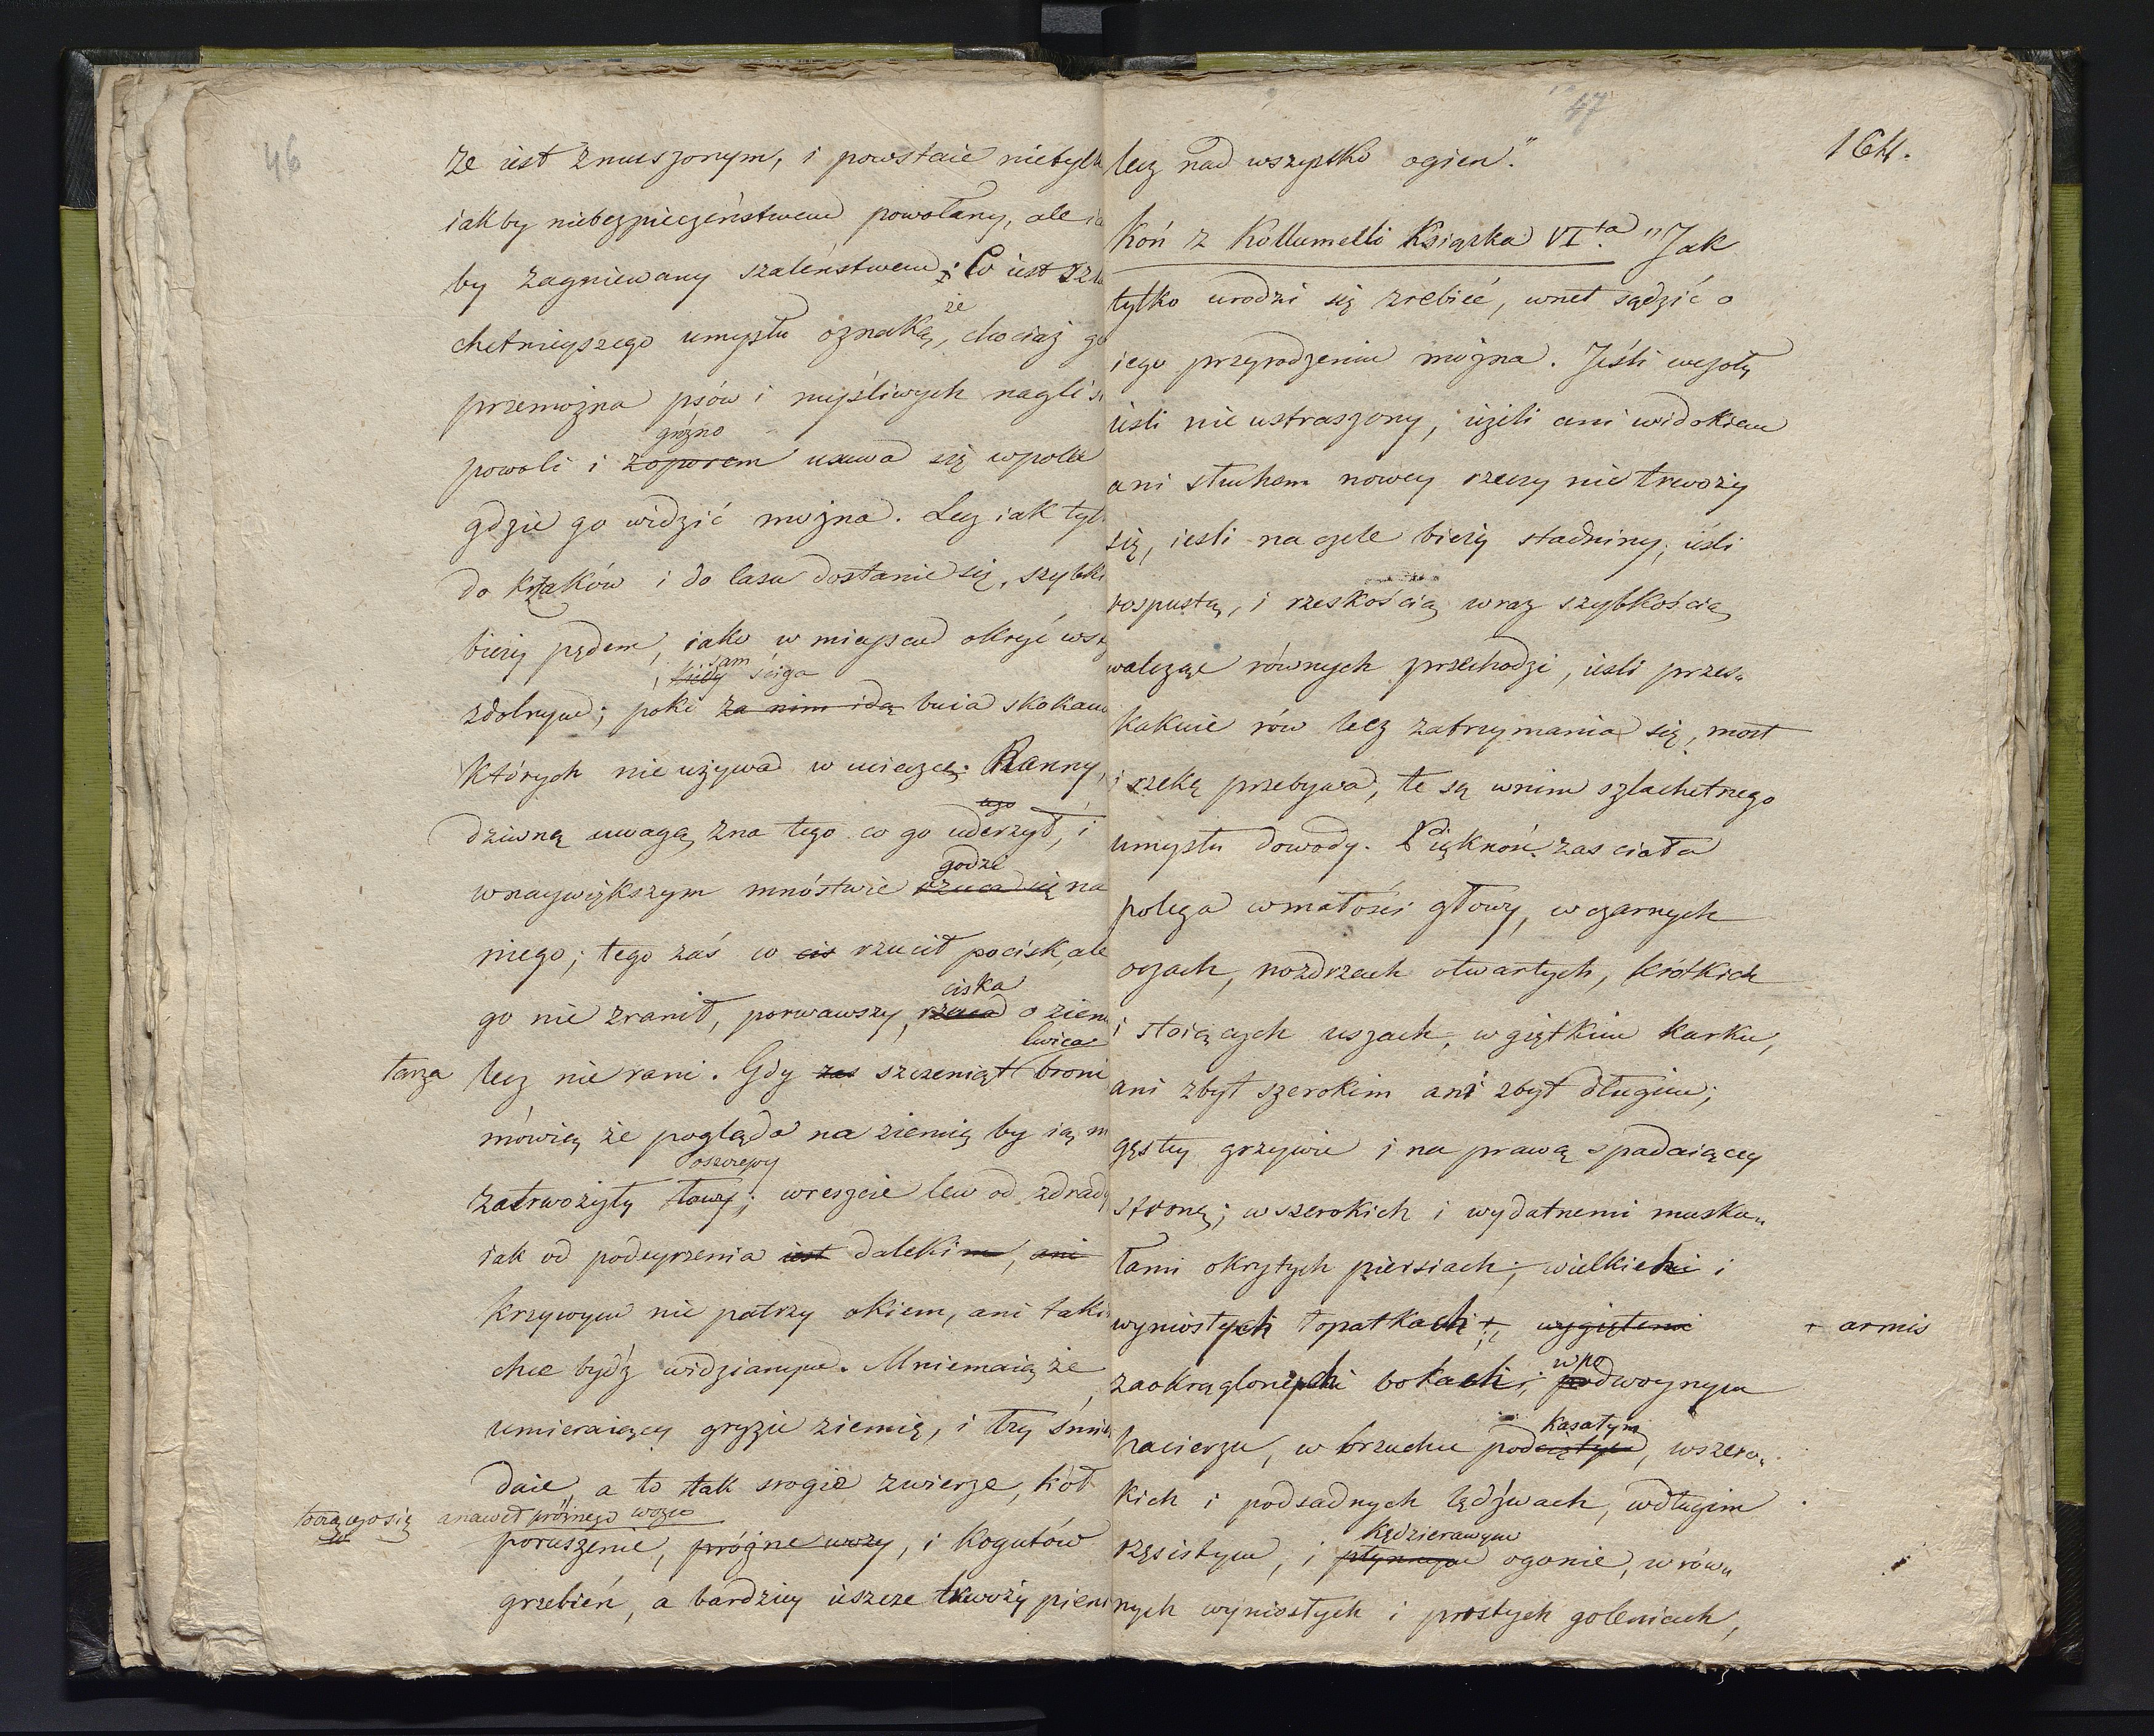 46
że iest zmuszonym, i powstaie nietylk
iakby niebezpieczeństwem powołany, ale ia
by zagniewany szaleństwem; Co iest szla
że
chetnieyszego umysłu oznaką, chociaż go
przemożna psów i myśliwych nagli si
groźno
powoli i z oporem usuwa się w pola
gdzie go widzić można. Lecz iak tyl
do krzaków i do lasu dostanie się, szybki
bieży pędem, iako w mieyscu okryć wst
sam
kiedy ściga
zdolnym; póki za nim idą buia skokam
których nie używa w ucieczce. Ranny,
dziwną uwagą zna tego co go uderzył, i
godzi
w naywiększym mnóstwie rzuca się na
niego; tego zaś co cis rzucił pocisk, ale
ciska
go nie zranił, porwawszy, rzuca o ziem
lwica
tarza
lecz nie rani. Gdy zas szczeniąt broni
mówią że pogląda na ziemię by ią n
oszczepy
zatrwożyły; wreszcie lew od zdrady
iak od podeyrzenia iest dalekim, ani
krzywym nie patrzy okiem, ani taki
chce bydź widzianym. Mniemaią że
umieraiący gryzie ziemię, i łzy śmie
daie, a to tak srogie zwierze, kół
toczącego się a nawet próżnego wozu
poruszenie, próżne wozy, i kogutów
grzebień, a bardziey ieszcze trwoży pieni
47
164.
lecz nad wszystko ogień."
Koń z Kollumelli Książka VI.ta "Jak
tylko urodzi się zrebie, wnet sądzić o
iego przyrodzeniu można. Jeśli wesoły
ieśli nieustraszony, ieżeli ani widokiem
ani słuchem nowey rzeczy nie trwoży
się, iesli na czele bieży stadniny, ieśli
rozpustą, i rzeskością wraz szybkością
walcząc równych przechodzi, iesli przes-
kakuie rów bez zatrzymania się, most
i rzekę przebywa, te są w nim szlachetnego
umysłu dowody. Piękność zas ciała
polega w małości głowy, w czarnych
oczach, nozdrzach otwartych, krótkich
i stoiących uszach, w giętkim karku,
ani zbyt szerokim ani zbyt długim;
gęstey grzywie i na prawą spadaiącey
stronę; w szerokich i wydatnemi musku-
łami okrytych piersiach; wielkich i
wyniosłych łopatkach +; wygiętemi
+ armis
zaokrąglonych bokach; w podwoynym
kasatym
pacierzu, w brzuchu podciętym, w szero-
kich i podsadnych lędźwach, w długim
kędzierawym
rzęsistym, i płynnym ogonie, w rów-
nych wyniosłych i prostych goleniach,